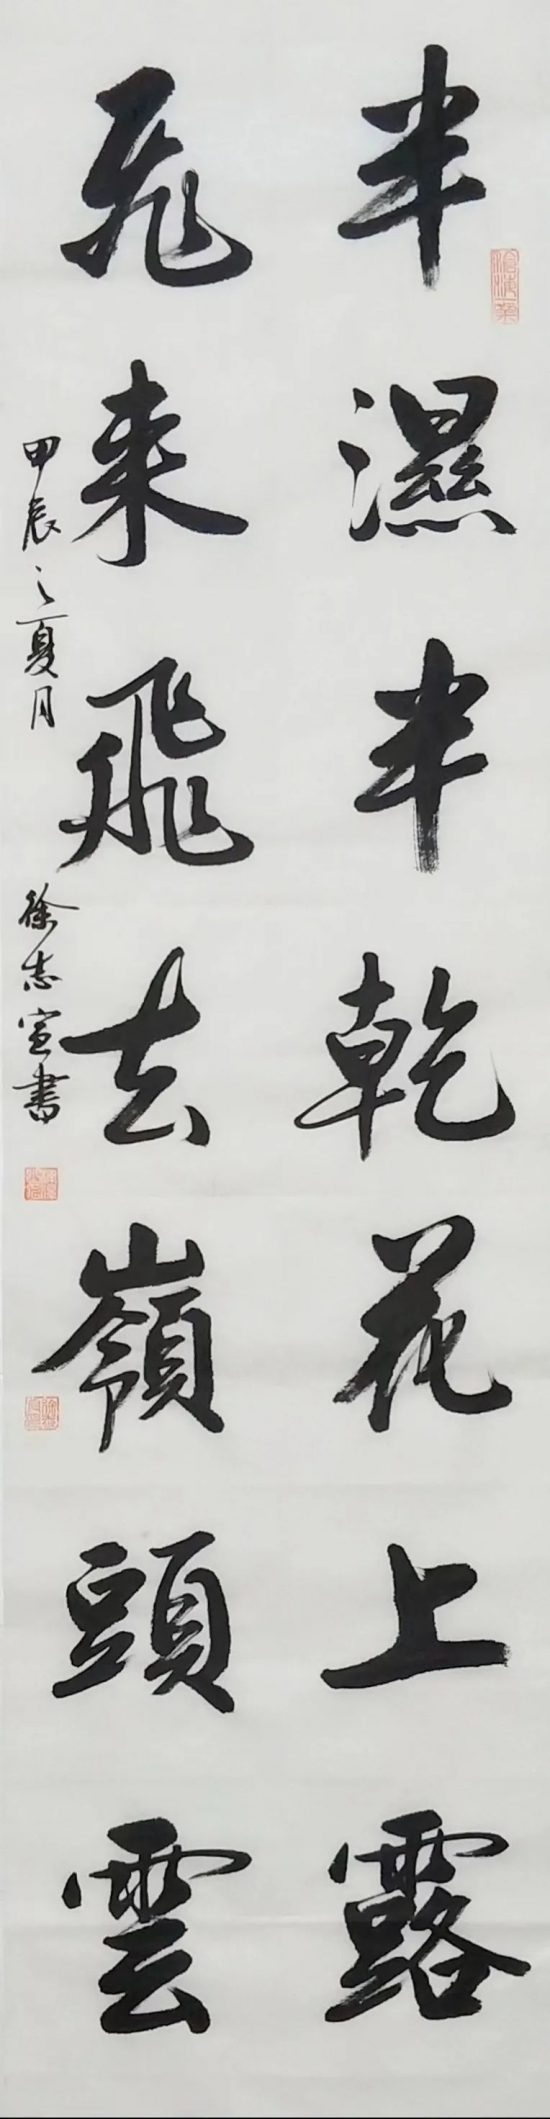 半濕半乾花上露
飛来飛去嶺頭雲
甲辰之夏月 徐志宣書